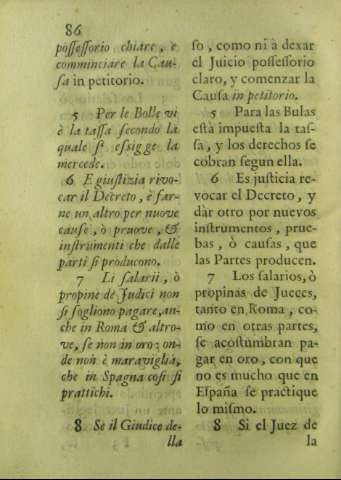 86
possessorio chiare, e
comminciare la Cau-
sa in petitorio.
5 Per le Bolle vi
è la tassa secondo la
quale si essigge la
mercede.
6 E giustizia rivo-
car il Decreto, è far-
ne un altro per nuove
cause, ò pruove, &
instrumenti che dalle
parti si producono.
7 Li salarii, ò
propine de Judici non
si sogliono pagare, an-
che in Roma & altro-
ve, se non in oro: on-
de non è maraviglia,
che in Spagna cosi si
prattichi.
8 Se il Giudice de-
lla
so, como ni à dexar
el Juicio possessorio
claro, y comenzar la
Causa in petitorio.
5 Para las Bulas
està impuesta la tas-
sa, y los derechos se
cobran segun ella.
6 Es justicia re-
vocar el Decreto, y
dàr otro por nuevos
instrumentos, prue-
bas, ò causas, que
las Partes producen.
7 Los salarios, ò
propinas de Jueces,
tanto en Roma, co-
mo en otras partes,
se acostumbran pa-
gar en oro, con que
no es mucho que en
España se practique
lo mismo.
8 Si el Juez de
la